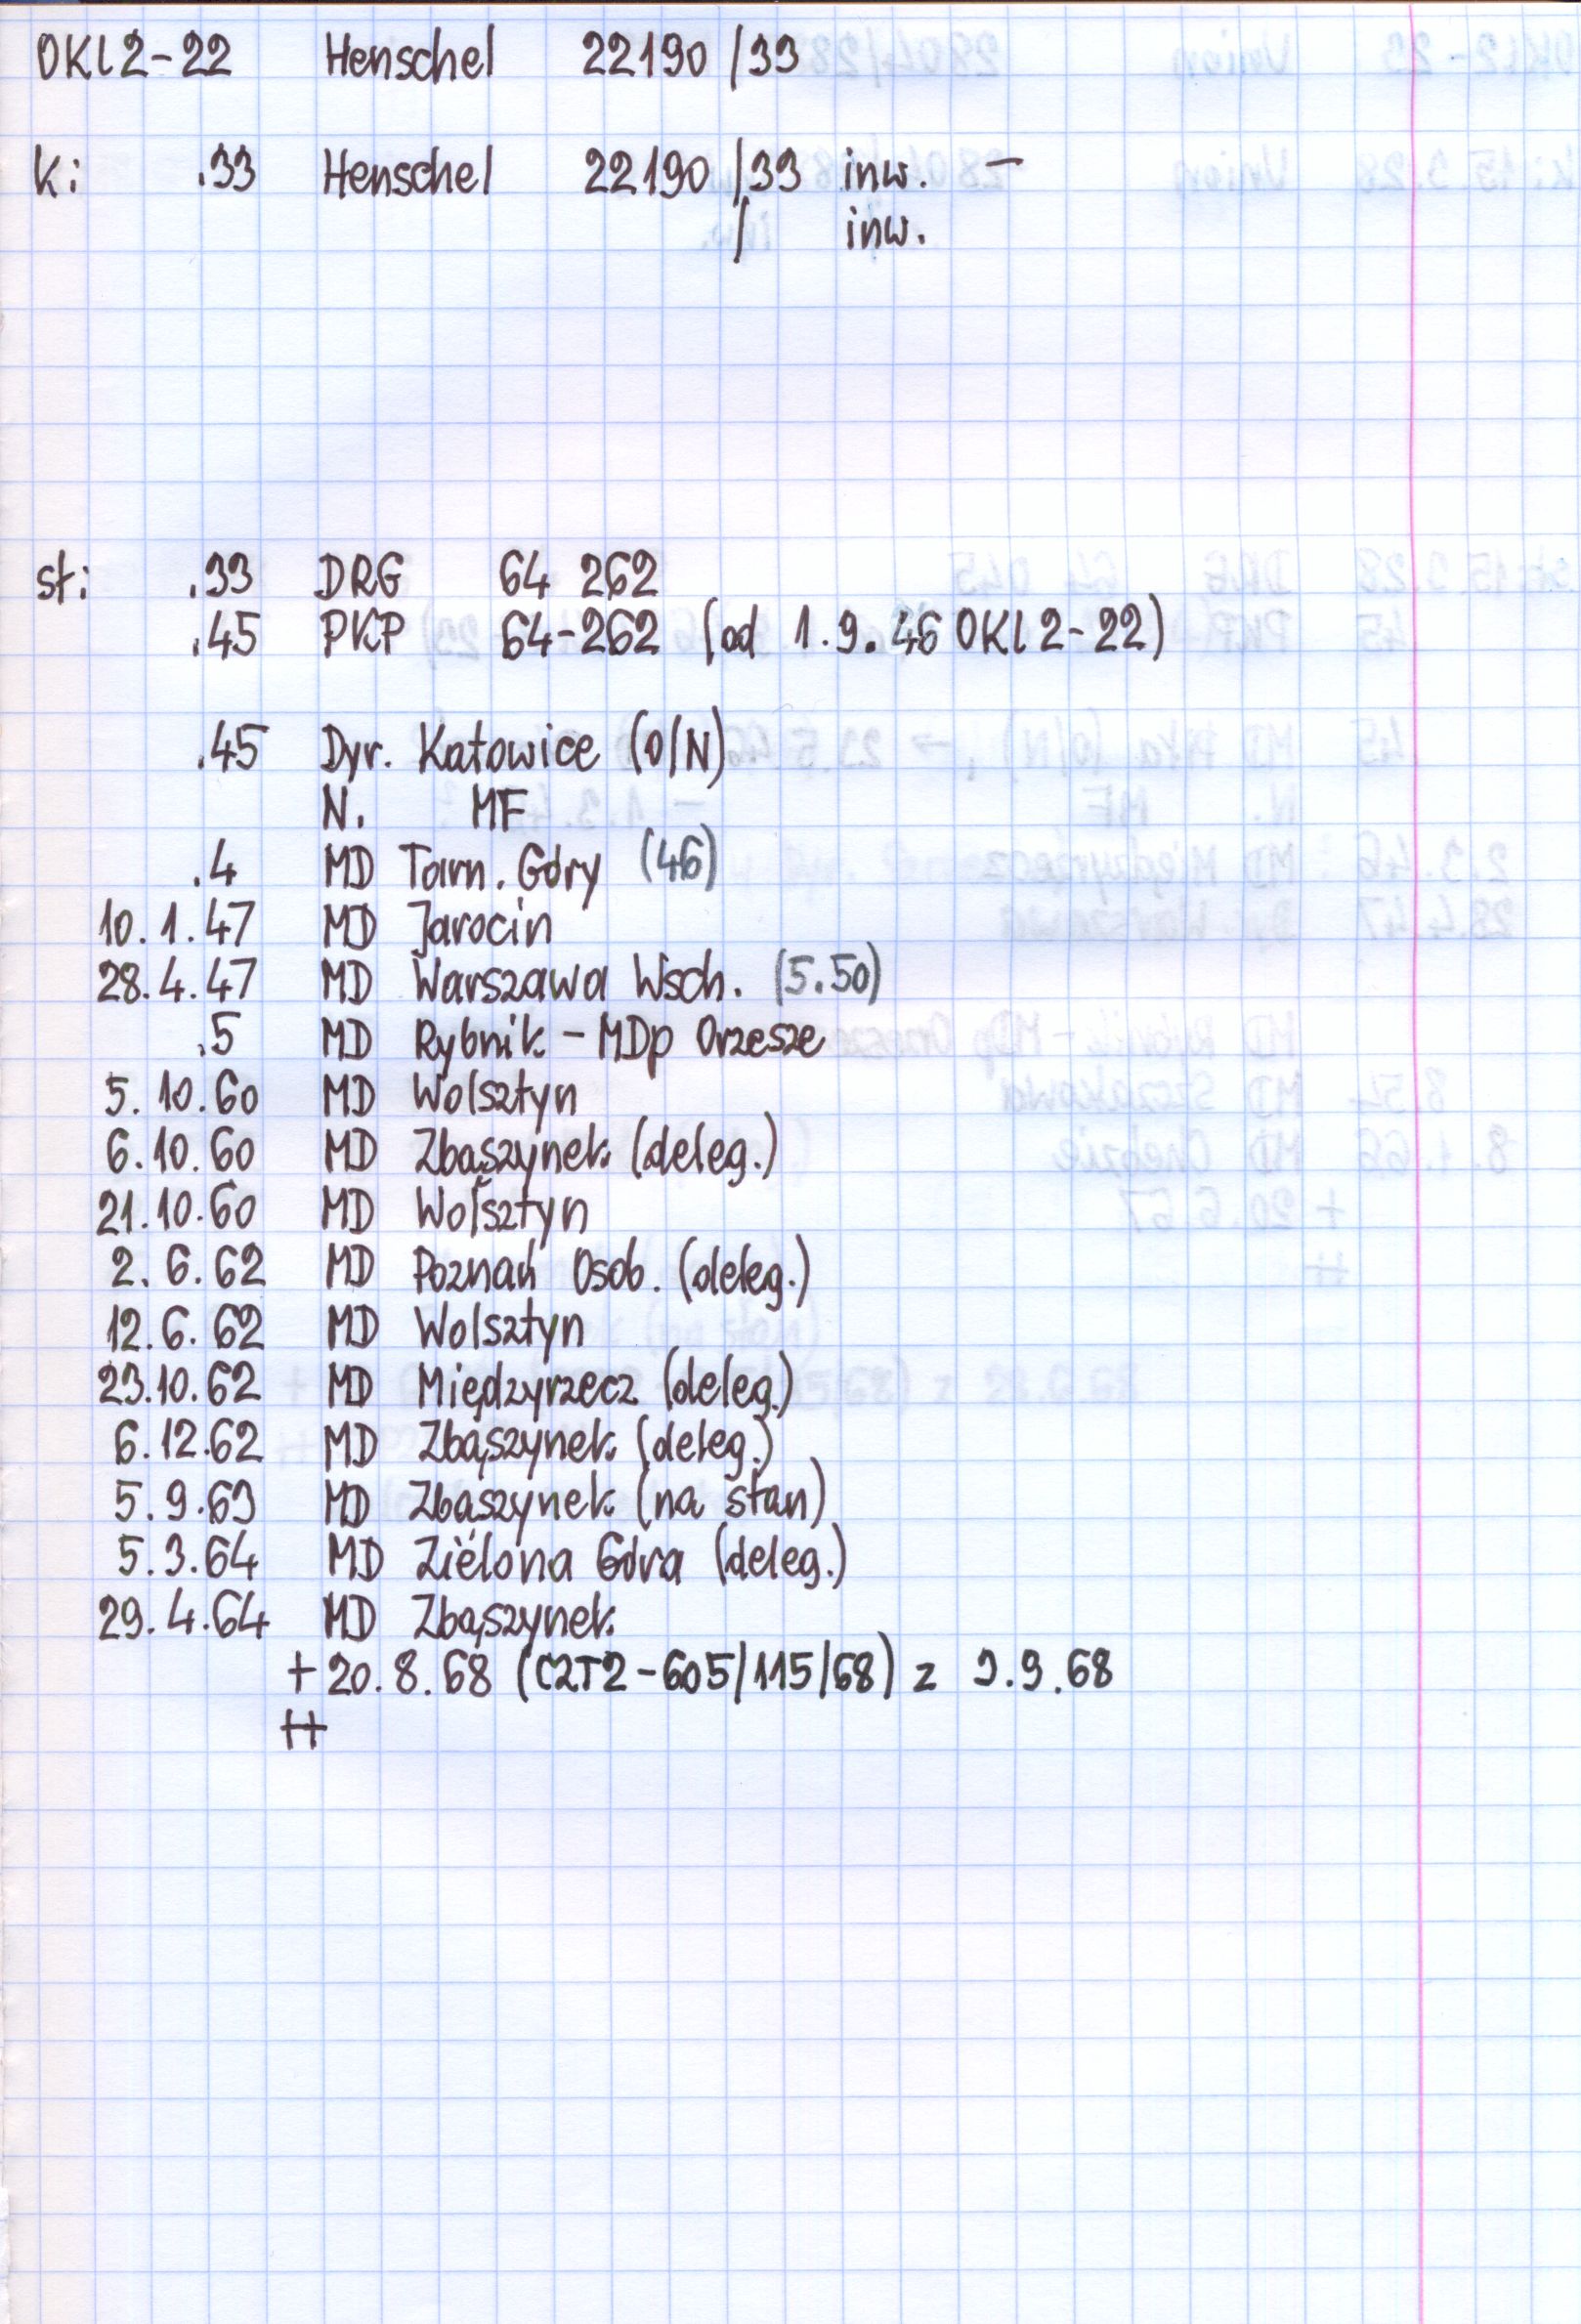 OKl2-22 Henschel 22190/33
k: .33 Henschel 22190/33 inw. –
/ inw.
st: .33 DRG 64 262
.45 PKP 64-262 (od 1.9.46 OKl2-22)
.45 Dyr. Katowice (O/N)
N. MF
.4 MD Tarn. Góry (46)
10.1.47 MD Jarocin
28.4.47 MD Warszawa Wsch. (5.50)
.5 MD Rybnik - MDp Orzesze
5.10.60 MD Wolsztyn
6.10.60 MD Zbąszynek (deleg.)
21.10.60 MD Wolsztyn
2.6.62 MD Poznań Osob. (deleg.)
12.6.62 MD Wolsztyn
23.10.62 MD Międzyrzecz (deleg.)
6.12.62 MD Zbąszynek (deleg.)
5.9.63 MD Zbąszynek (na stan)
5.3.64 MD Zielona Góra (deleg.)
29.4.64 MD Zbąszynek
+ 20.8.68 (C2T2-605/115/68) z 3.9.68
++